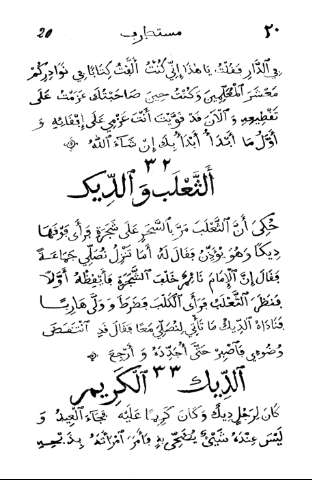 ٢٠ مستظرف 20
فِي الدَّارِ فَقُلْتُ يَا هٰذَا إِنِّي كُنْتُ أَلَّفْتُ كِتَابًا فِي نَوَادِرِكُمْ
مَعْشَرَ الْمُعَلِّمِينَ وَكُنْتُ حِينَ صَاحَبْتُكَ عَزَمْتُ عَلَى
تَقْطِيعِهِ وَالْآنَ قَدْ قَوَّيْتَ أَنْتَ عَزْمِي عَلَى إِبْقَائِهِ وَ
أَوَّلُ مَا أَبْدَأُ أَبْدَأُ بِكَ إِنْ شَاءَ اللّٰهُ
٣٢
اَلثَّعْلَبُ وَالدِّيكُ
حُكِيَ أَنَّ الثَّعْلَبَ مَرَّ بِالسَّحَرِ عَلَى شَجَرَةٍ فَرَأَى فَوْقَهَا
دِيكًا وَهُوَ يُؤَذِّنُ فَقَالَ لَهُ أَمَا تَنْزِلُ نُصَلِّي جَمَاعَةً
فَقَالَ إِنَّ الْإِمَامَ نَائِمٌ خَلْفَ الشَّجَرَةِ فَأَيْقِظْهُ أَوَّلًا
فَنَظَرَ الثَّعْلَبُ فَرَأَى الْكَلْبَ فَضَرَطَ وَ وَلَّى هَارِبًا
فَنَادَاهُ الدِّيكُ مَا تَأْتِي لِنُصَلِّيَ مَعًا فَقَالَ قَدِ انْتَقَضَ
وُضُوئِي فَاصْبِرْ حَتَّى أُجَدِّدَهُ وَ أَرْجِعَ
اَلدِّيكُ ٣٣ الْكَرِيمُ
كَانَ لِرَجُلٍ دِيكٌ وَكَانَ كَرِيمًا عَلَيْهِ فَجَاءَ الْعِيدُ وَ
لَيْسَ عِنْدَهُ شَيْءٌ يُضَحِّي بِهِ فَأَمَرَ امْرَأَتَهُ بِذَبْحِهِ